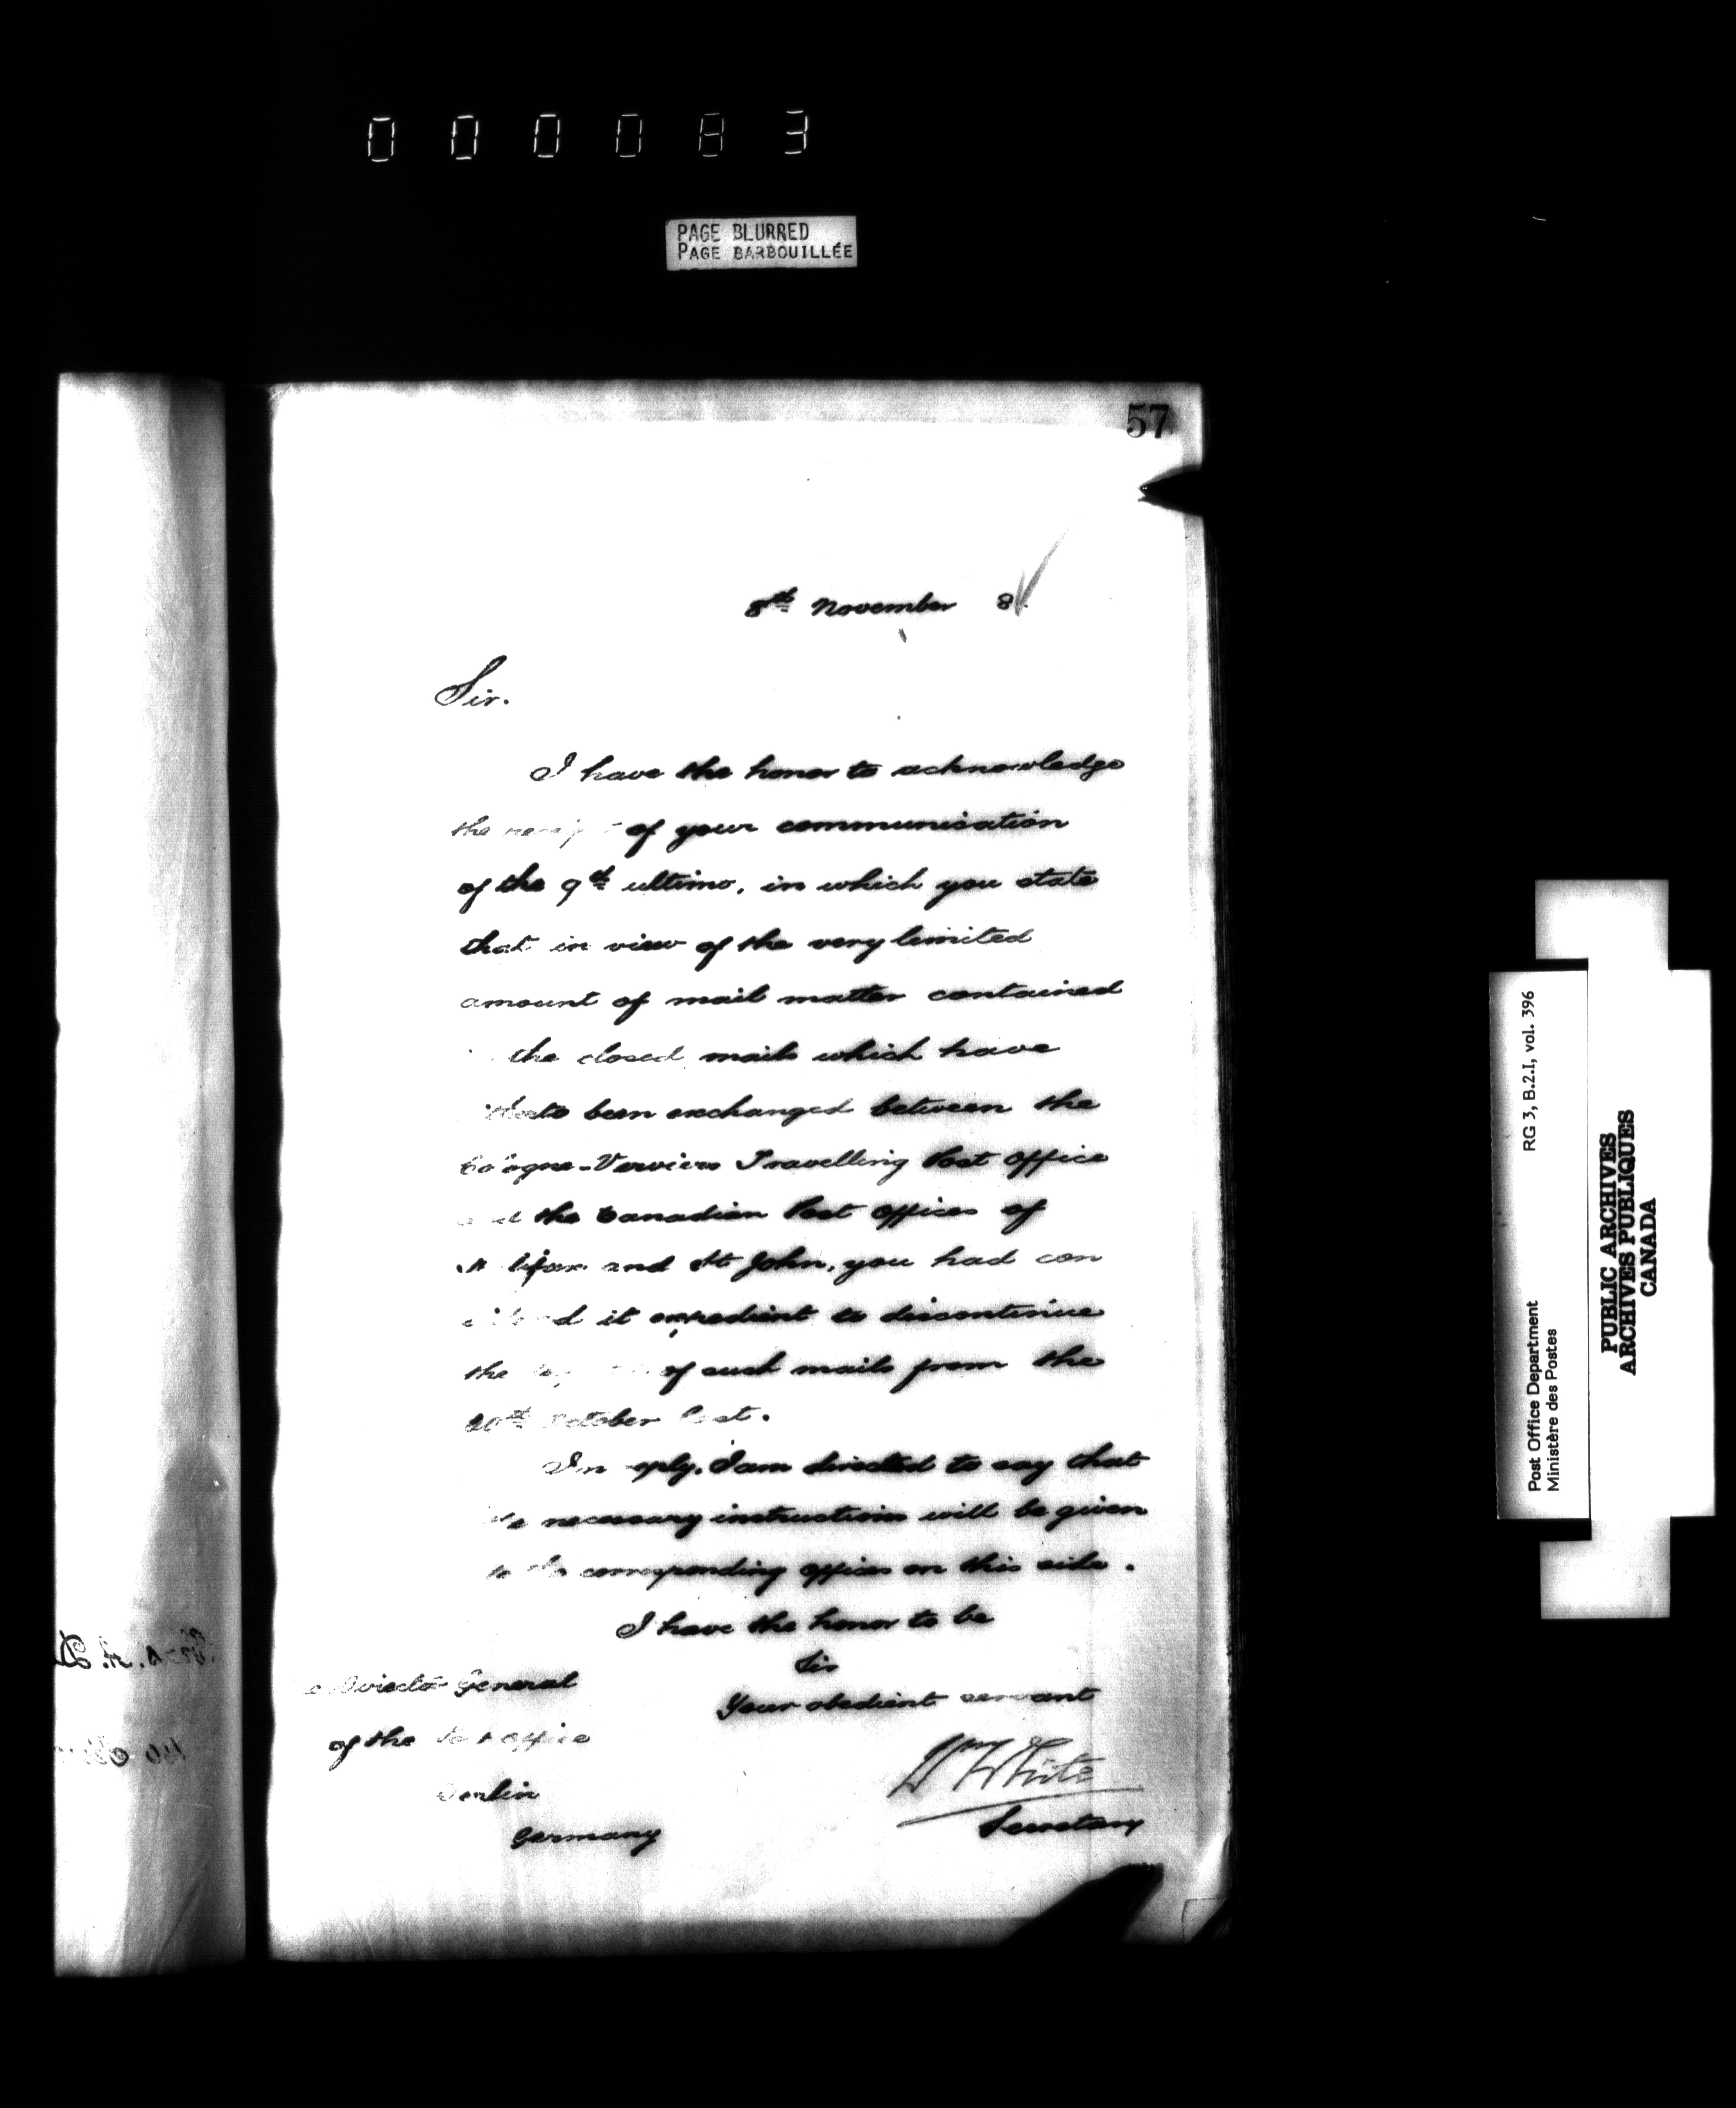 000083
PAGE BLURRED
PAGE BARBOUILLÉE
57
8th November 8
Sir.
I have the honor to acknowledge
the receipt of your communication
of the 9th ultimo, in which you state
that in view of the very limited
amount of mail matter contained
the closed mails which have
been exchanged between the
Cologne-Verviers Travelling Post Office
and the Canadian Post Offices of
Halifax and St John, you had con
it expedient to discontinue
the of such mails from the
October last.
In reply, I am directed to say that
the necessary instructions will be given
to the corresponding offices on this side.
I have the honor to be
Sir
Your obedient servant
Wm White
Secretary
Director General
of the Post Office
Berlin
Germany
Post Office Department RG 3, B.2.I, vol. 396
Ministère des Postes
PUBLIC ARCHIVES
ARCHIVES PUBLIQUES
CANADA